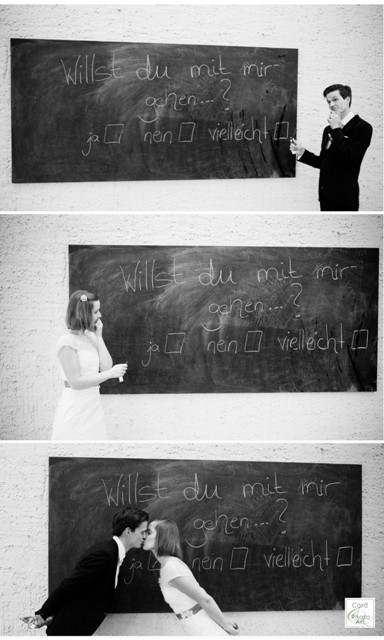 Willst du mit mir
gehen...?
ja nein vielleicht
Willst du mit mir
gehen...?
ja nein vielleicht
Willst du mit mir
gehen...?
ja nein vielleicht
Card
Photo
Art